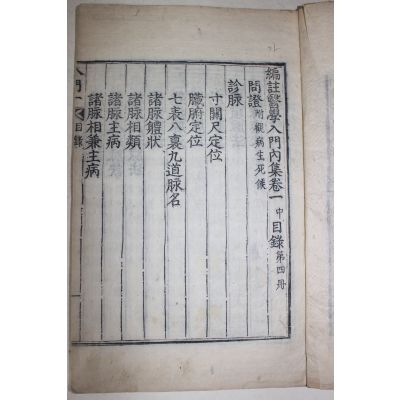 編註醫學入門內集卷一中目錄第四冊
問證附觀病生死候
診脉
寸關尺定位
臟腑定位
七表八裏九道脉名
諸脉體狀
諸脉相類
諸脉主病
諸脉相兼主病
入門一 目錄